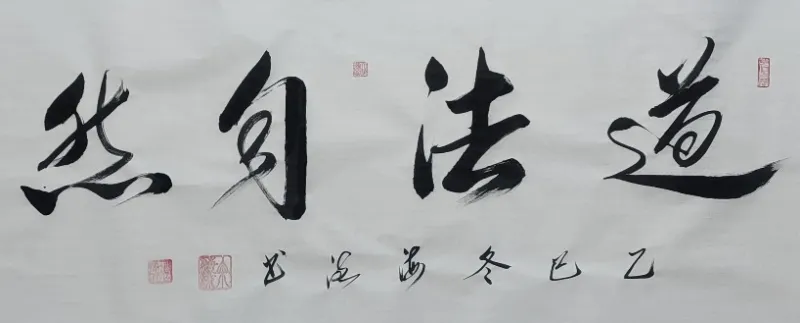 道法自然
乙巳冬海涵书